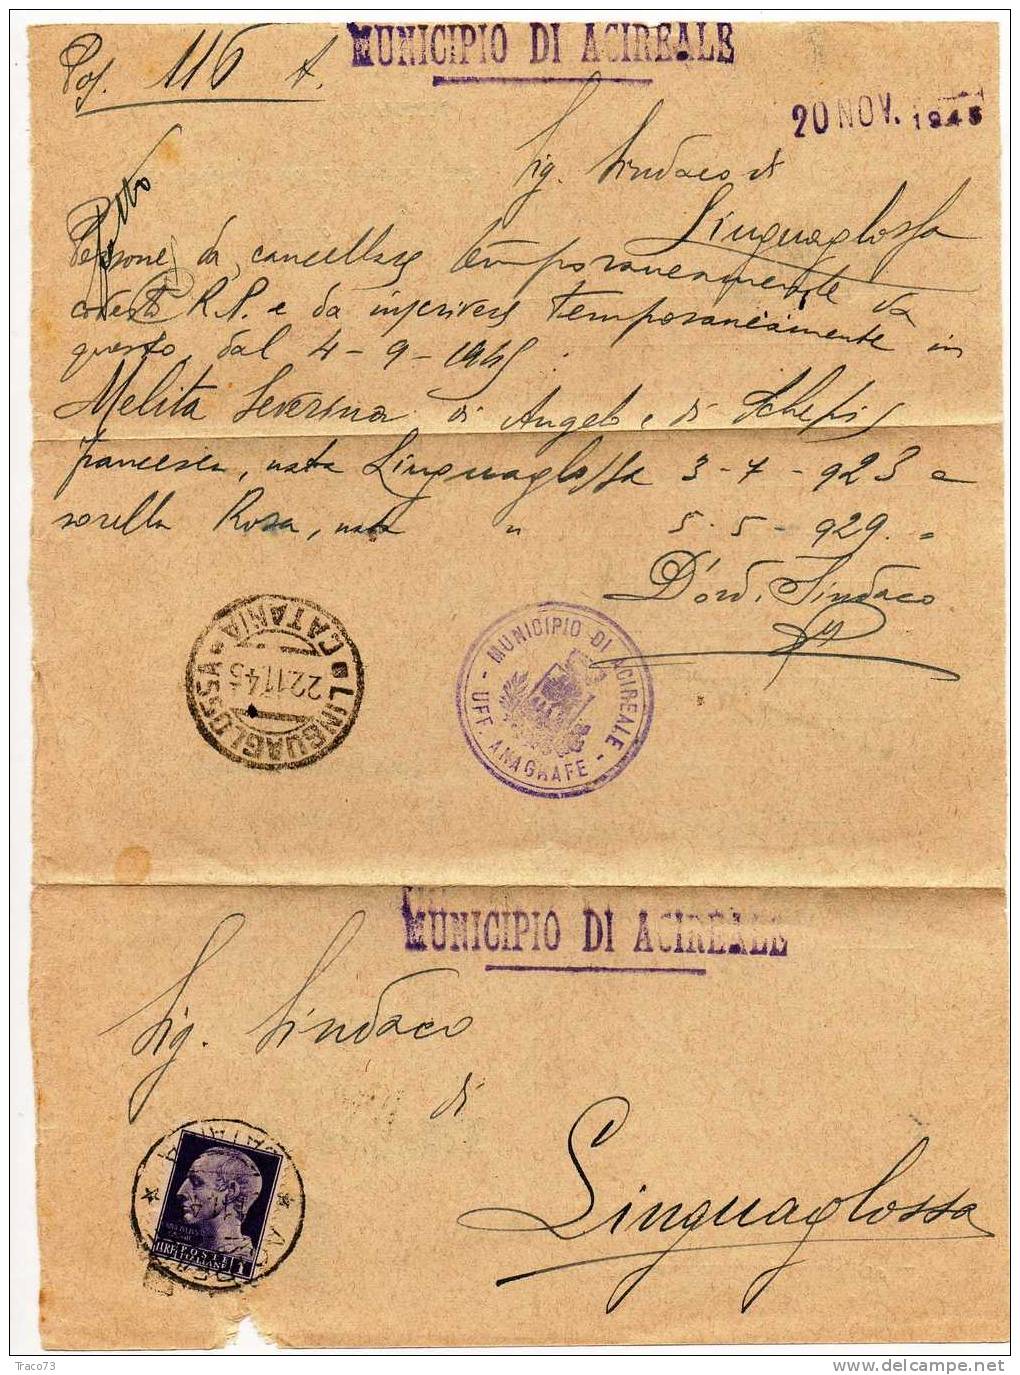 MUNICIPIO DI ACIREALE
Pos. 116 A.
20 NOV. 1945
Sig. Sindaco di
Linguaglossa
Persone da cancellare temporaneamente da
codesto R.P. e da inscrivere temporaneamente in
questo, dal 4-9-1945.
Melita Severina di Angelo e di Schepis
Francesca, nata Linguaglossa 3-7-923 e
sorella Rosa, nata " 5-5-929. =
D'ord. Sindaco
LINGUAGLOSSA
CATANIA
22.11.45
MUNICIPIO DI ACIREALE
UFF. ANAGRAFE
MUNICIPIO DI ACIREALE
Sig. Sindaco
di
Linguaglossa
LIRE
POSTE
ITALIANE
1
Traco73
delcampe.net